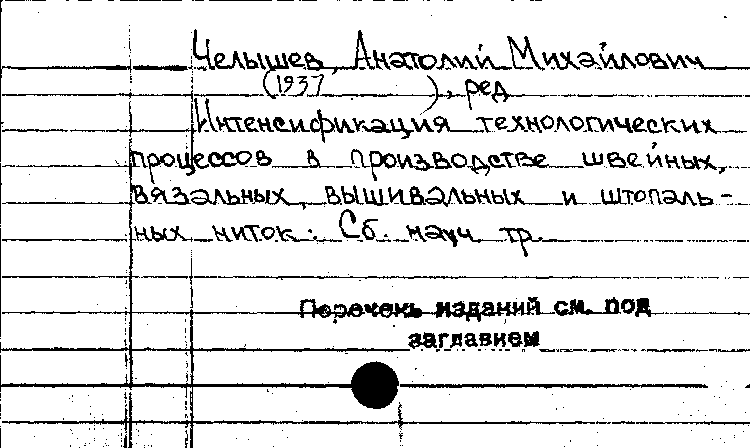 Челышев, Анатолий Михайлович
(1937 ), ред
Интенсификация технологических
процессов в производстве швейных,
вязальных, вышивальных и штопаль-
ных ниток: Сб. науч. тр.
Перечень изданий см. под
заглавием